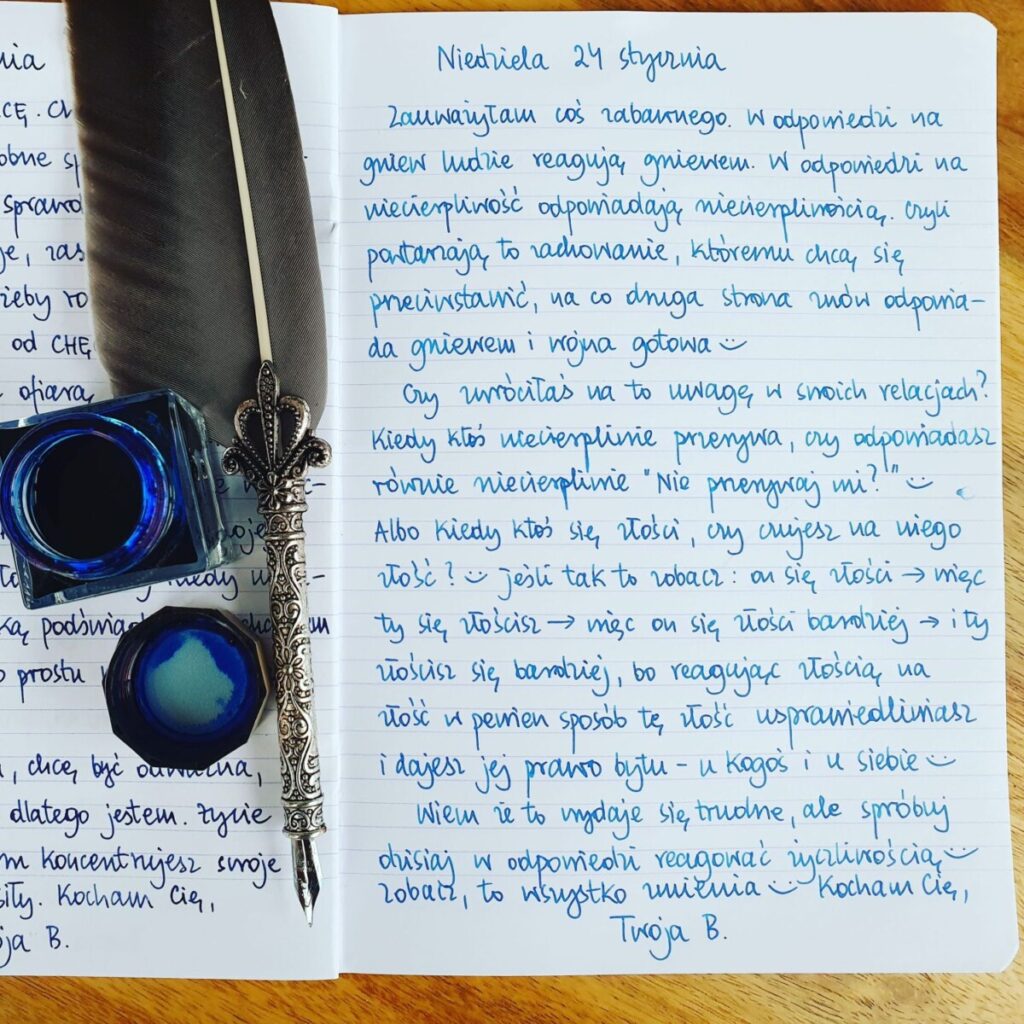 nia
CĘ. Ch
obne sp
sprawd
je, zas
żeby ro
od CHĘ
ofiarą
moje
kiedy
ką podświad
prostu
, chcę być odważna,
dlatego jestem. Życie
m koncentrujesz swoje
siły. Kocham Cię,
ja B.
Niedziela 24 stycznia
Zauważyłam coś zabawnego. W odpowiedzi na
gniew ludzie reagują gniewem. W odpowiedzi na
niecierpliwość odpowiadają niecierpliwością. Czyli
powtarzają to zachowanie, któremu chcą się
przeciwstawić, na co druga strona znów odpowia-
da gniewem i wojna gotowa
Czy zwróciłaś na to uwagę w swoich relacjach?
Kiedy ktoś niecierpliwie przerywa, czy odpowiadasz
równie niecierpliwie "Nie przerywaj mi?"
Albo kiedy ktoś się złości, czy czujesz na niego
złość? Jeśli tak to zobacz: on się złości → więc
ty się złościsz → więc on się złości bardziej → i ty
złościsz się bardziej, bo reagując złością na
złość w pewien sposób tę złość usprawiedliwiasz
i dajesz jej prawo bytu - u kogoś i u siebie
Wiem że to wydaje się trudne, ale spróbuj
dzisiaj w odpowiedzi reagować życzliwością
zobacz, to wszystko zmienia Kocham Cię,
Twoja B.